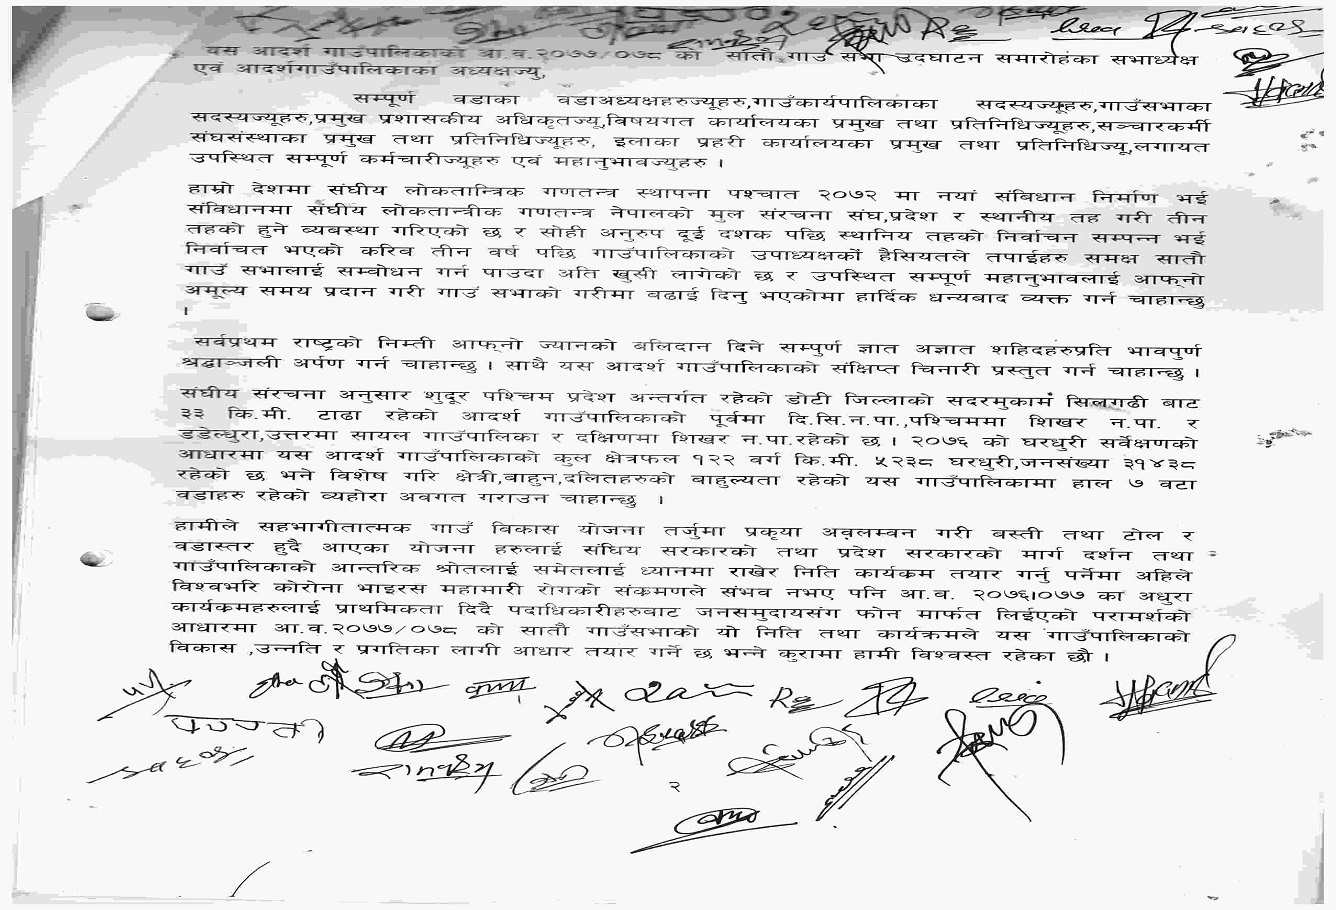 यस आदर्श गाउँपालिकाको आ.व.२०७७/०७८ को सातौ गाउँ सभा उदघाटन समारोहका सभाध्येक्ष
एवं आदर्शगाउँपालिकाका अध्यक्षज्यु,
सम्पूर्ण वडाका वडाअध्यक्षहरुज्यूहरु,गाउँकार्यपालिकाका सदस्यज्यूहरु,गाउँसभाका
सदस्यज्यूहरु,प्रमुख प्रशासकीय अधिकृतज्यू,विषयगत कार्यालयका प्रमुख तथा प्रतिनिधिज्यूहरु,सञ्चारकर्मी
संघसंस्थाका प्रमुख तथा प्रतिनिधिज्यूहरु, इलाका प्रहरी कार्यालयका प्रमुख तथा प्रतिनिधिज्यू,लगायत
उपस्थित सम्पूर्ण कर्मचारीज्यूहरु एवं महानुभावज्युहरु ।
हाम्रो देशमा संघीय लोकतान्त्रिक गणतन्त्र स्थापना पश्चात २०७२ मा नयां संबिधान निर्माण भई
संविधानमा संघीय लोकतान्त्रीक गणतन्त्र नेपालको मुल संरचना संघ,प्रदेश र स्थानीय तह गरी तीन
तहको हुने व्यबस्था गरिएको छ र सोही अनुरुप दूई दशक पछि स्थानिय तहको निर्वाचन सम्पन्न भई
निर्वाचत भएको करिव तीन वर्ष पछि गाउँपालिकाको उपाध्यक्षको हैसियतले तपाईहरु समक्ष सातौ
गाउँ सभालाई सम्वोधन गर्न पाउदा अति खुसी लागेको छ र उपस्थित सम्पूर्ण महानुभावलाई आफ्‌नो
अमूल्य समय प्रदान गरी गाउँ सभाको गरीमा बढाई दिनु भएकोमा हार्दिक धन्यबाद व्यक्त गर्न चाहान्छु
।
सर्वप्रथम राष्ट्रको निम्ती आफ्‌नो ज्यानको बलिदान दिने सम्पुर्ण ज्ञात अज्ञात शहिदहरुप्रति भावपुर्ण
श्रद्धाञ्जली अर्पण गर्न चाहान्छु । साथै यस आदर्श गाउँपालिकाको संक्षिप्त चिनारी प्रस्तुत गर्न चाहान्छु ।
संघीय संरचना अनुसार शुदूर पश्चिम प्रदेश अन्तर्गत रहेको डोटी जिल्लाको सदरमुकामं सिलगढी बाट
३३ कि.मी. टाढा रहेको आदर्श गाउँपालिकाको पूर्वमा दि.सि.न.पा.,पश्चिममा शिखर न.पा. र
डडेल्धुरा,उत्तरमा सायल गाउँपालिका र दक्षिणमा शिखर न.पा.रहेको छ । २०७६ को घरधुरी सर्वेक्षणको
आधारमा यस आदर्श गाउँपालिकाको कुल क्षेत्रफल १२२ वर्ग कि.मी. ५२३८ घरधुरी,जनसंख्या ३१४३८
रहेको छ भने विशेष गरि क्षेत्री,बाहुन,दलितहरुको बाहुल्यता रहेको यस गाउँपालिकामा हाल ७ वटा
वडाहरु रहेको व्यहोरा अवगत गराउन चाहान्छु ।
हामीले सहभागीतात्मक गाउँ विकास योजना तर्जुमा प्रकृया अवलम्वन गरी बस्ती तथा टोल र
वडास्तर हुदै आएका योजना हरुलाई संधिय सरकारको तथा प्रदेश सरकारको मार्ग दर्शन तथा
गाउँपालिकाको आन्तरिक श्रोतलाई समेतलाई ध्यानमा राखेर निति कार्यकम तयार गर्नु पर्नेमा अहिले
विश्वभरि कोरोना भाइरस महामारी रोगको संकमणले संभव नभए पनि आ.ब. २०७६।०७७ का अधुरा
कार्यकमहरुलाई प्राथमिकता दिदै पदाधिकारीहरुबाट जनसमुदायसंग फोन मार्फत लिईएको परामर्शको
आधारमा आ.व.२०७७/०७८ को सातौ गाउँसभाको यो निति तथा कार्यक्रमले यस गाउँपालिकाको
विकास ,उन्नति र प्रगतिका लागी आधार तयार गर्ने छ भन्ने कुरामा हामी विश्वस्त रहेका छौ ।
२